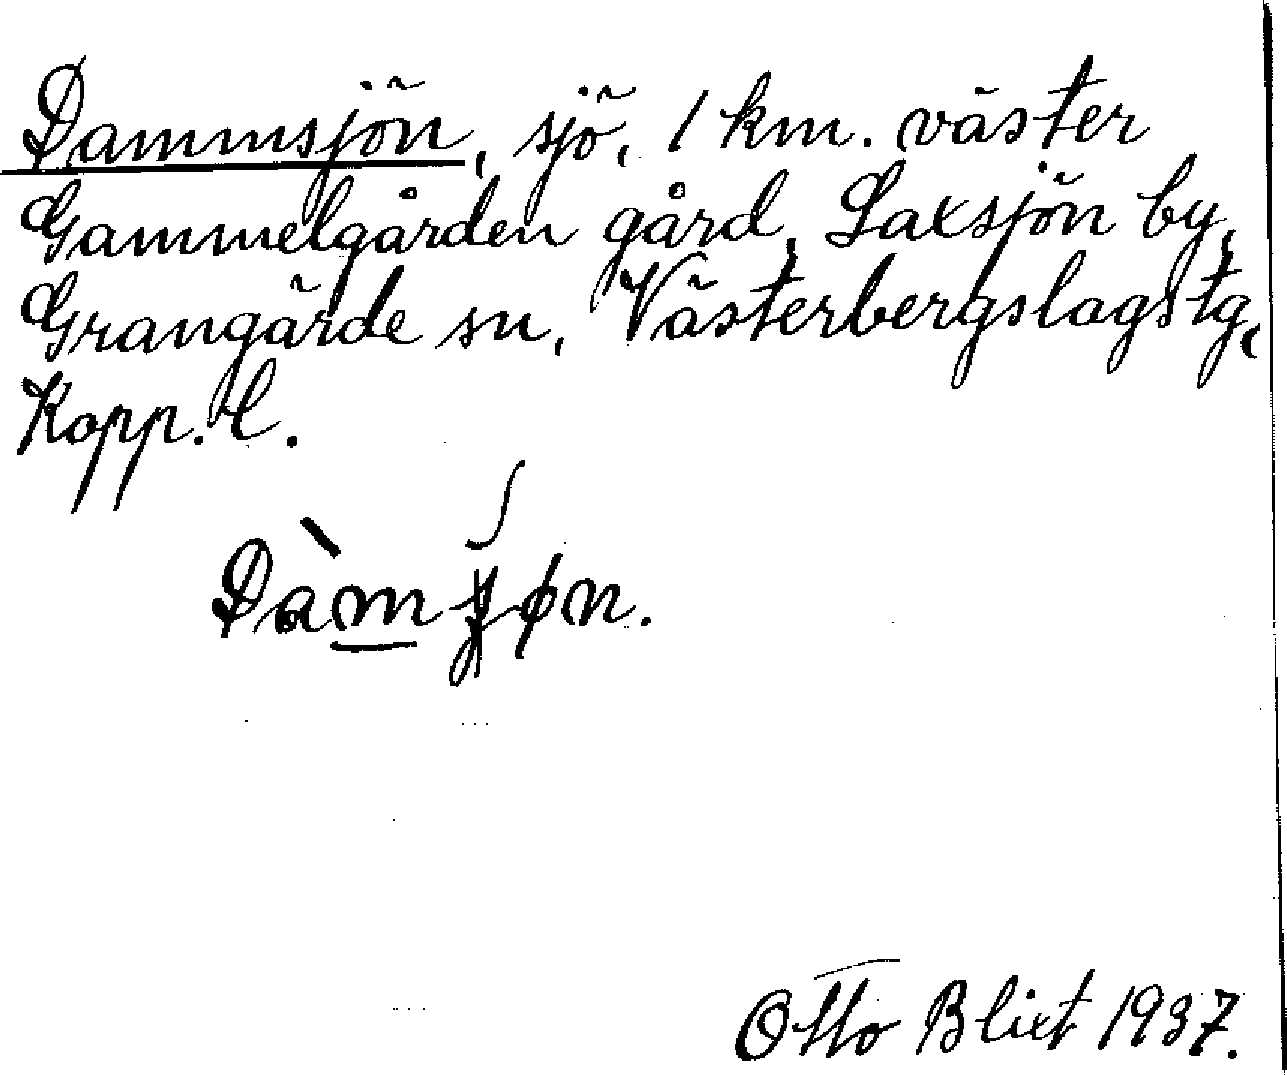 Dammsjön, sjö, 1 km. väster
Gammelgården gård, Laxsjön by,
Grangärde sn, Västerbergslags tg,
Kopp. l.
ʃ
Dàmʃøn.
Otto Blixt 1937.